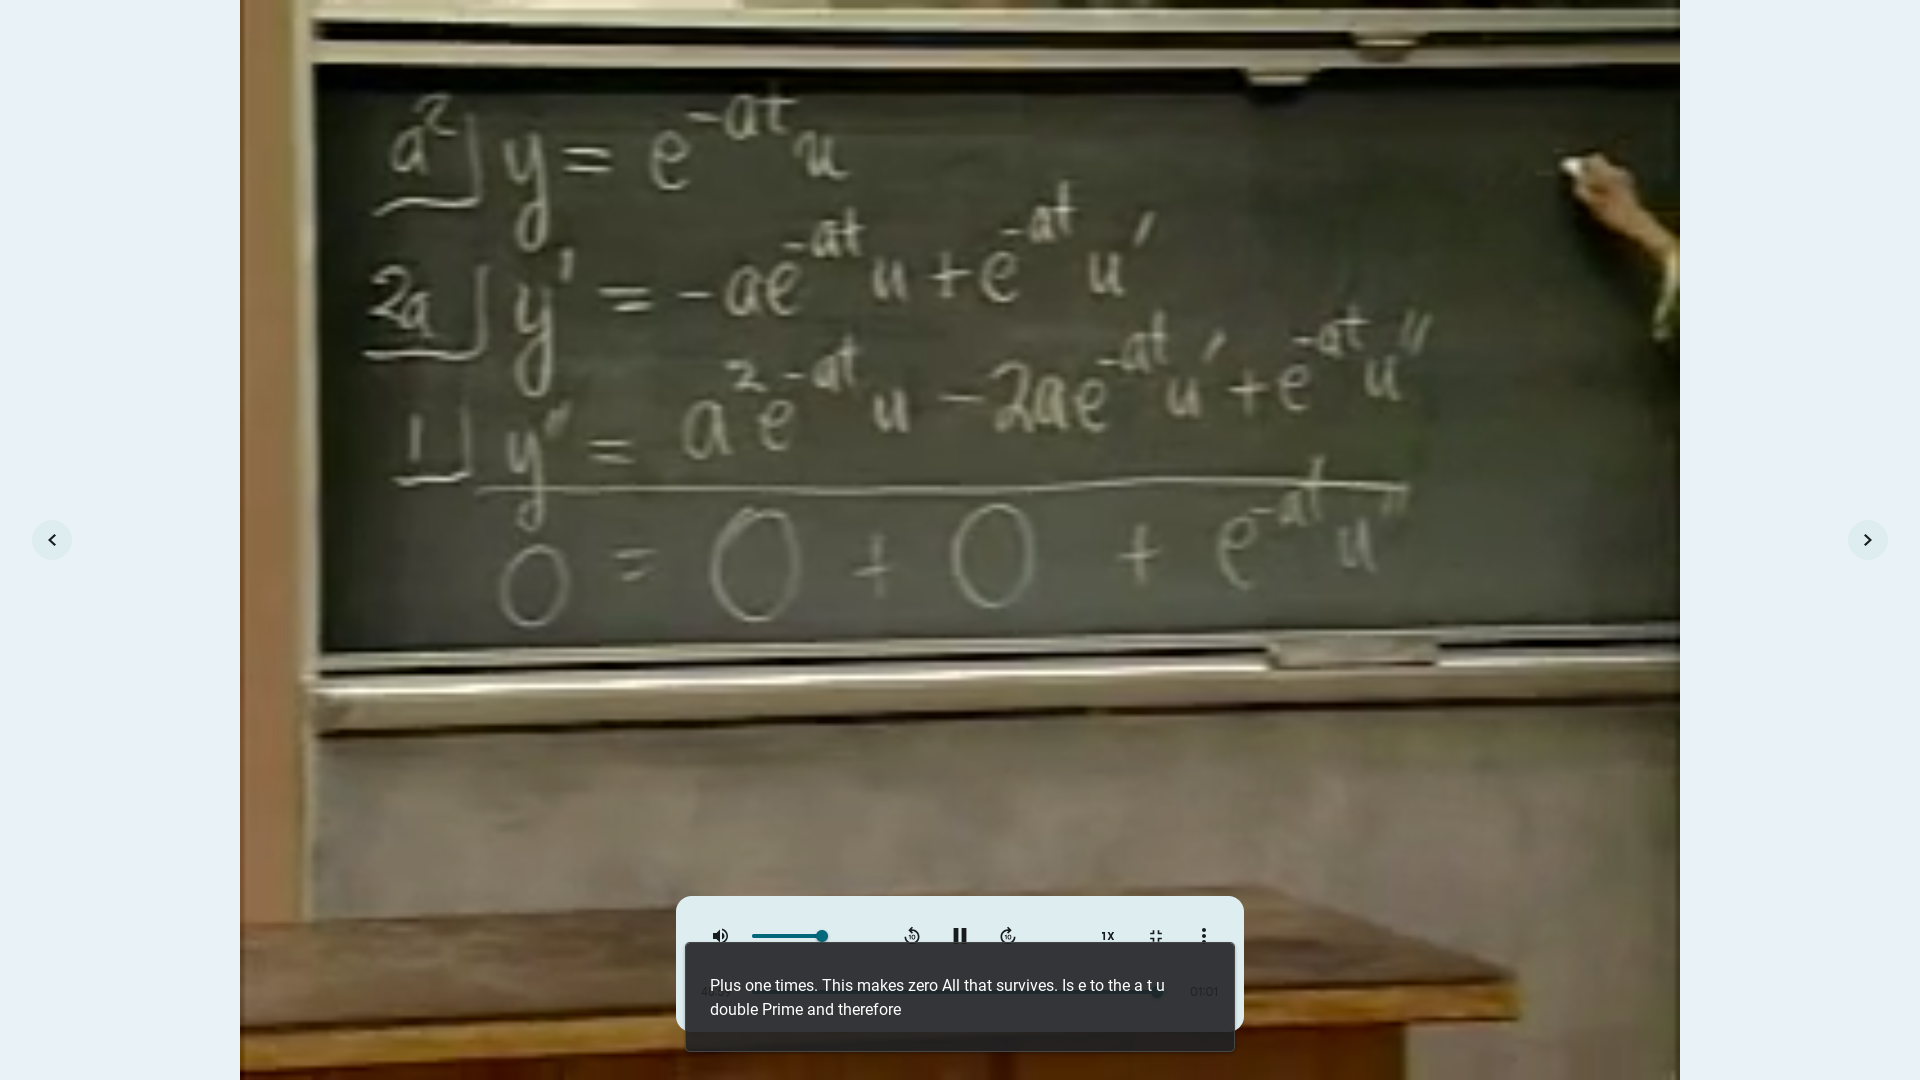 a² y = e^-at u
2a y' = -ae^-at u + e^-at u'
1 y'' = a²e^-at u - 2ae^-at u' + e^-at u''
0 = 0 + 0 + e^-at u''
10 10 1X
01:01
Plus one times. This makes zero All that survives. Is e to the a t u
double Prime and therefore